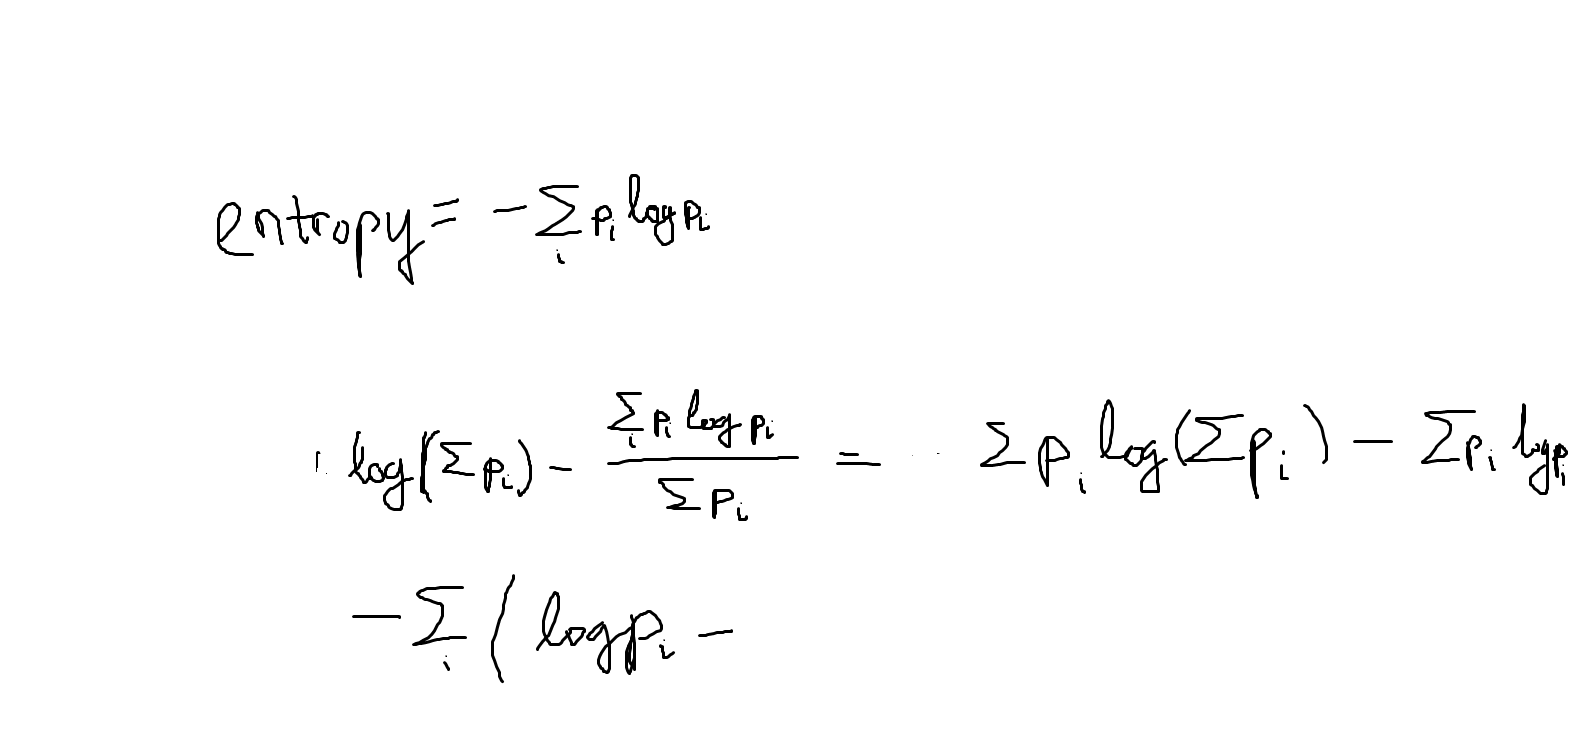 entropy = -∑_i p_i log p_i
log(∑ p_i) - (∑_i p_i log p_i) / (∑ p_i) = ∑ p_i log(∑ p_i) - ∑ p_i log p_i
-∑_i ( log p_i -